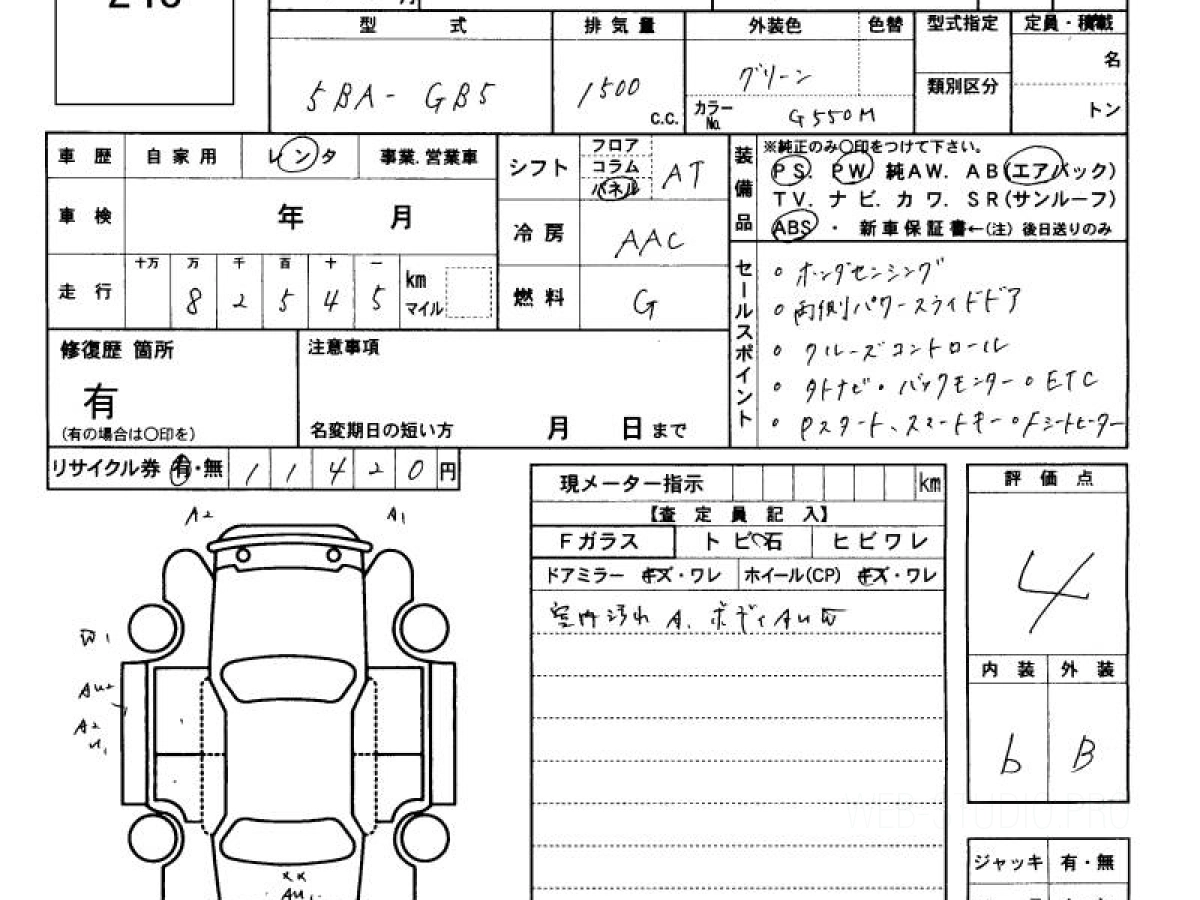 型 式 排気量 外装色 色替 型式指定 定員・積載
5BA- GB5 1500 c.c. グリーン 名
カラーNo. G550M 類別区分 トン
車歴 自家用 レンタ 事業.営業車 シフト フロア コラム パネル AT
装備品 ※純正のみ〇印をつけて下さい。
PS. PW. 純AW. AB(エアバック)
TV. ナビ. カワ. SR(サンルーフ)
ABS ・ 新車保証書←(注) 後日送りのみ
車検 年 月 冷房 AAC
走行 十万 万 千 百 十 一
8 2 5 4 5 km マイル 燃料 G
セールスポイント
○ ホンダセンシング
○ 両側パワースライドドア
○ クルーズコントロール
○ タトナビ○バックモニター○ETC
○ Pスタート、スマートキー○Fシートヒーター
修復歴 箇所 注意事項
有
(有の場合は〇印を) 名変期日の短い方 月 日まで
リサイクル券 有・無 1 1 4 2 0 円
現メーター指示 km
【査定員記入】
Fガラス トビ石 ヒビワレ
ドアミラー キズ・ワレ ホイール(CP) キズ・ワレ
室内汚れ A. ボディAUW
評価点
4
内装 外装
b B
A2 A1
W1
AU2
A2
U1
XX
AU
ジャッキ 有・無
WEB-STUDIO.PRO